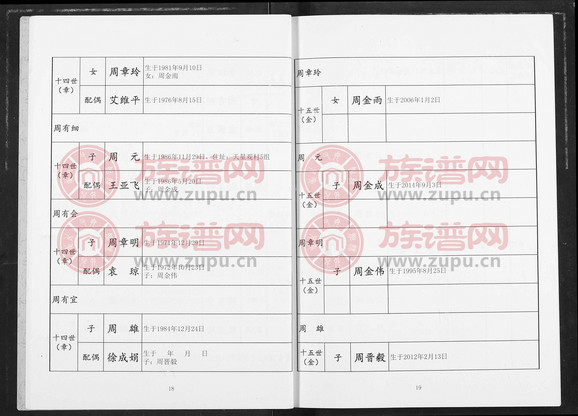 十四世
(章)
女
周章玲
生于1981年9月10日
女：周金雨
配偶
艾维平
生于1976年8月15日
周有细
十四世
(章)
子
周 元
生于1986年11月29日，住址：天星观村3组
配偶
王亚飞
生于1986年5月20日
子：周金成
周有会
十四世
(章)
子
周章明
生于1971年12月29日
配偶
袁 琼
生于1972年10月23日
子：周金伟
周有宜
十四世
(章)
子
周 雄
生于1984年12月24日
配偶
徐成娟
生于 年 月 日
子：周晋毅
18
周章玲
十五世
(金)
女
周金雨
生于2006年1月2日
周 元
十五世
(金)
子
周金成
生于2011年9月3日
周章明
十五世
(金)
子
周金伟
生于1995年8月25日
周 雄
十五世
(金)
子
周晋毅
生于2012年2月13日
19
族谱网
www.zupu.cn
族谱网
www.zupu.cn
族谱网
www.zupu.cn
族谱网
www.zupu.cn